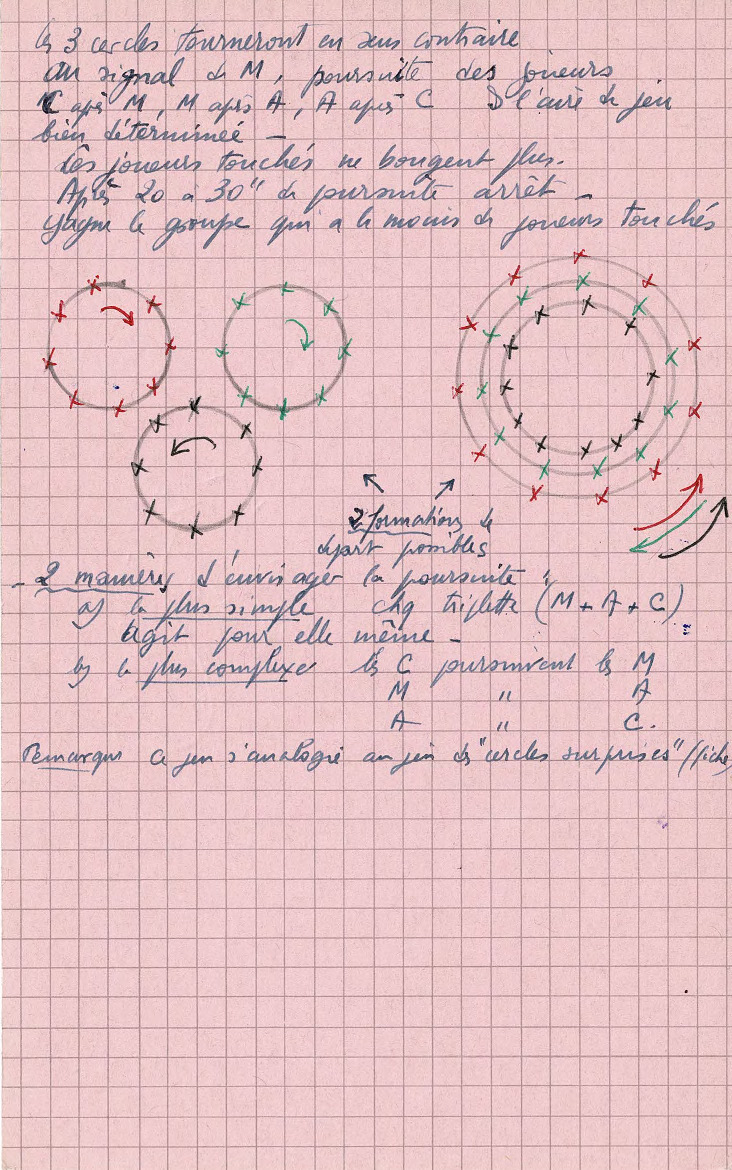 les 3 cercles tourneront en sens contraire
au signal de M, poursuite des joueurs
C après M, M après A, A après C ds l'aire de jeu
bien déterminée -
les joueurs touchés ne bougent plus.
Après 20 à 30" de poursuite arrêt -
gagne le groupe qui a le moins de joueurs touchés
2 formations de
départ possibles
- 2 manières d'envisager la poursuite :
a) la plus simple chq triplette (M + A + C)
agit pour elle même -
b) la plus complexe les C poursuivent les M
M " A
A " C.
Remarque Ce jeu s'analogie au jeu des "cercles surprises" (fiche